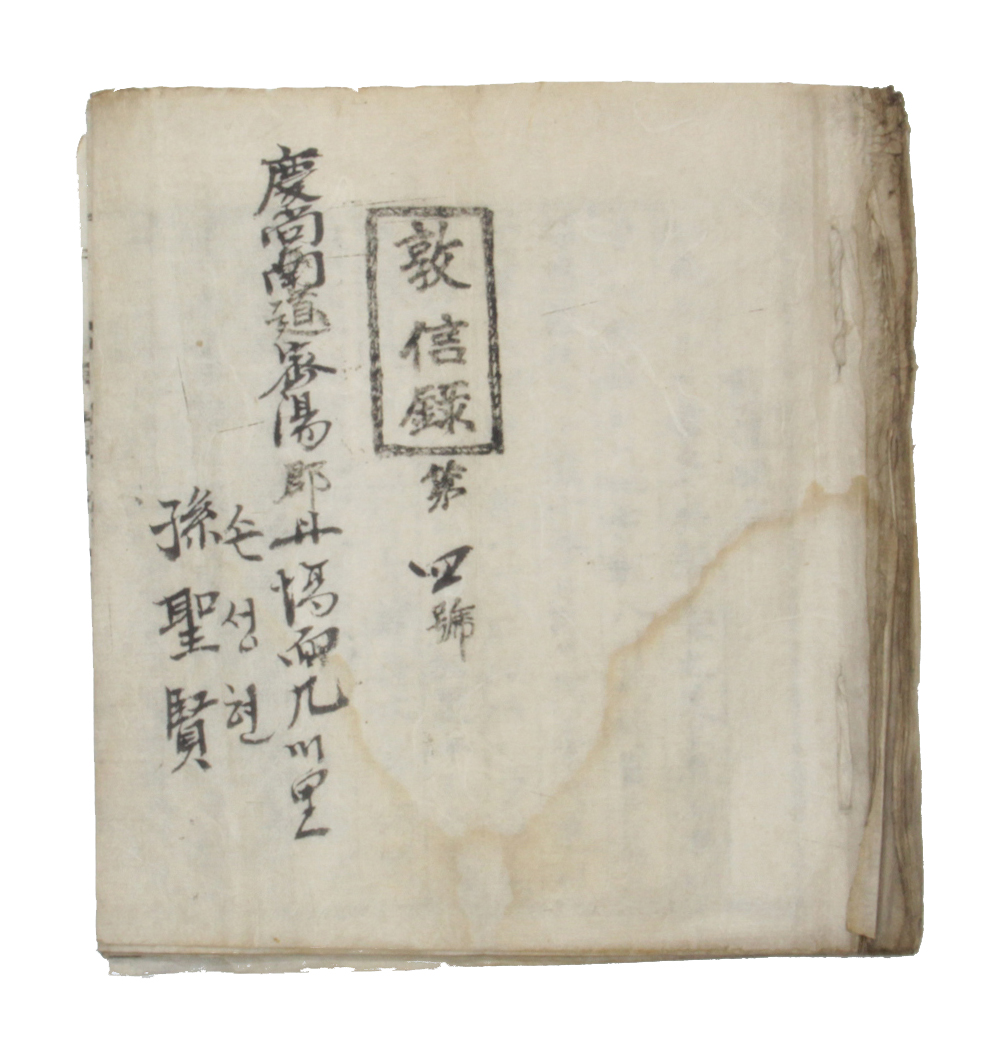 敦信錄第四號
慶尙南道密陽郡丹塲面凡川里
손성현
孫聖賢